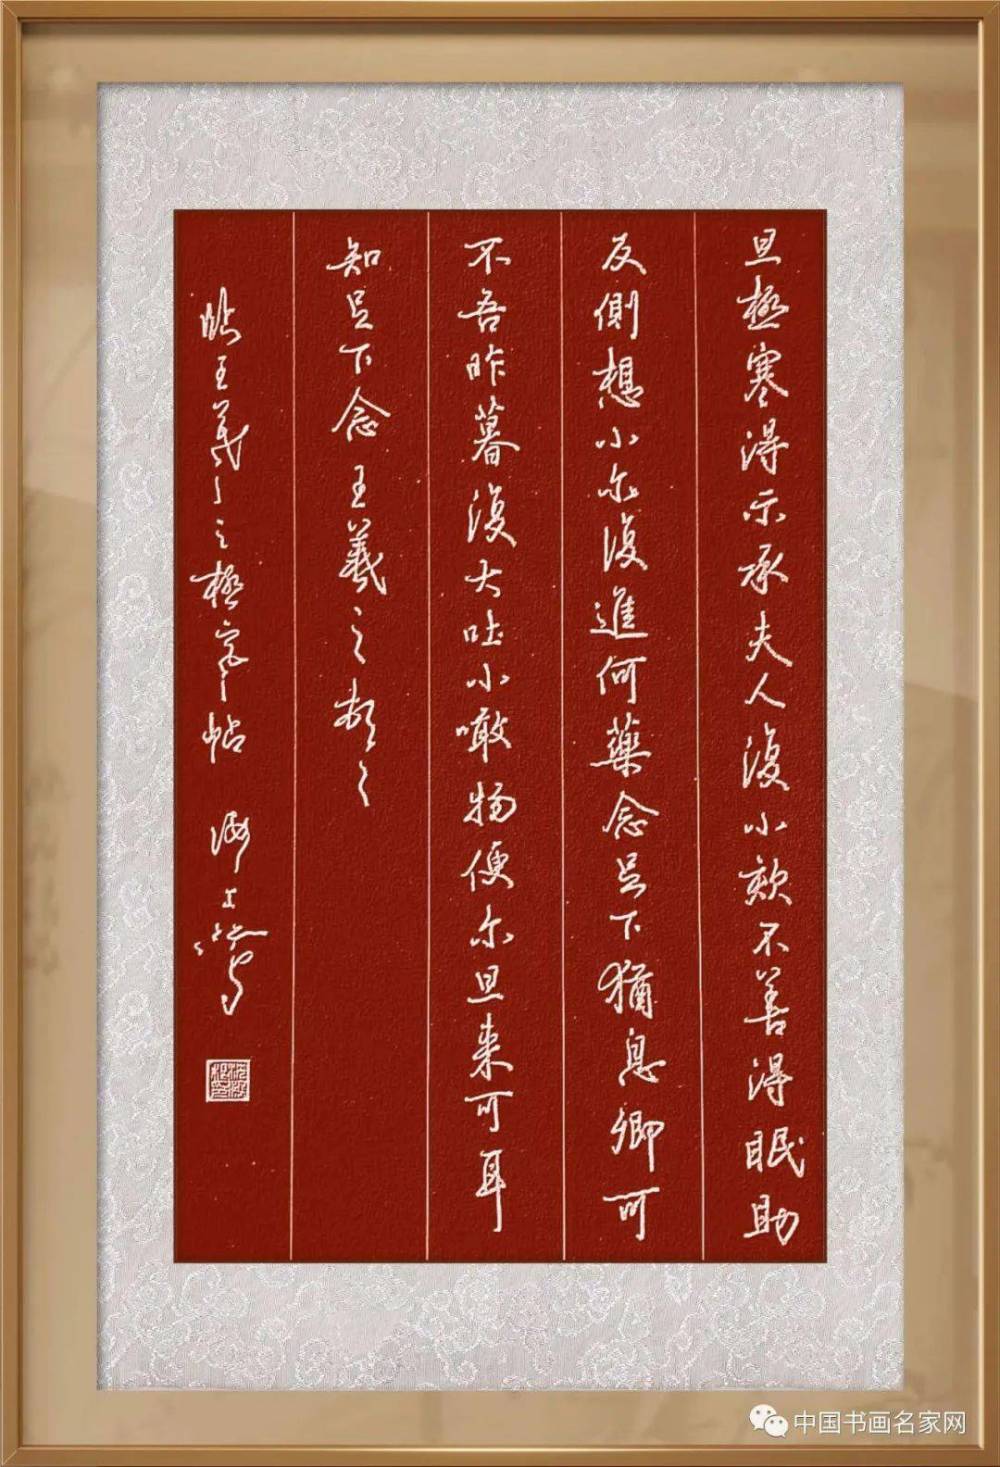 旦極寒得示承夫人復小欬不善得眠助
反側想小尔復進何藥念足下猶息卿可
不吾昨暮復大吐小噉物便尔旦来可耳
知足下念王羲之頓〻
临王羲之之極寒帖
中国书画名家网